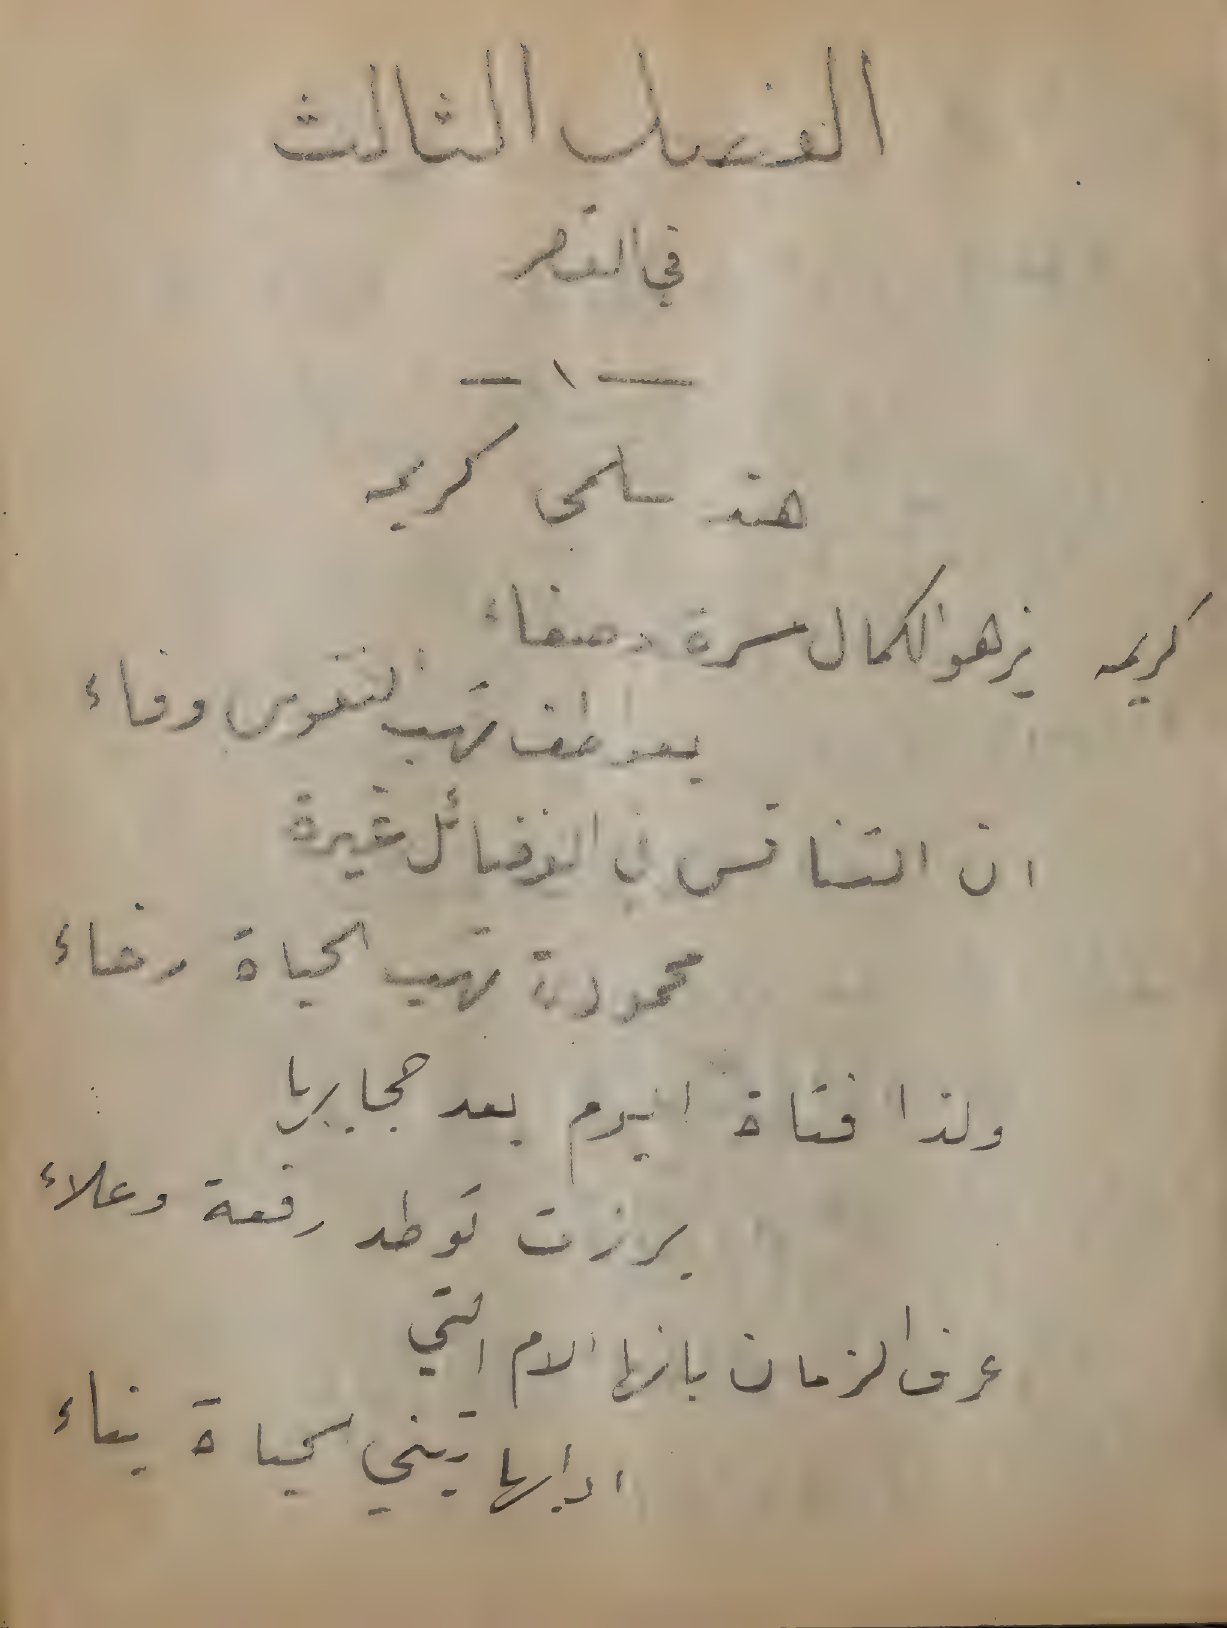 الفصل الثالث
في القصر
— ١ —
هند سلمى كريمه
كريمه يزهو الكمال مسرة وصفاء
بعواطف تهب النفوس وفاء
ان التنافس في الفضائل غيرة
محمودة تهب الحياة رخاء
ولذا فتاة اليوم بعد حجابها
برزت توطد رفعة وعلاء
عرف الزمان بانها الام التي
ادابها تبني الحياة بناء